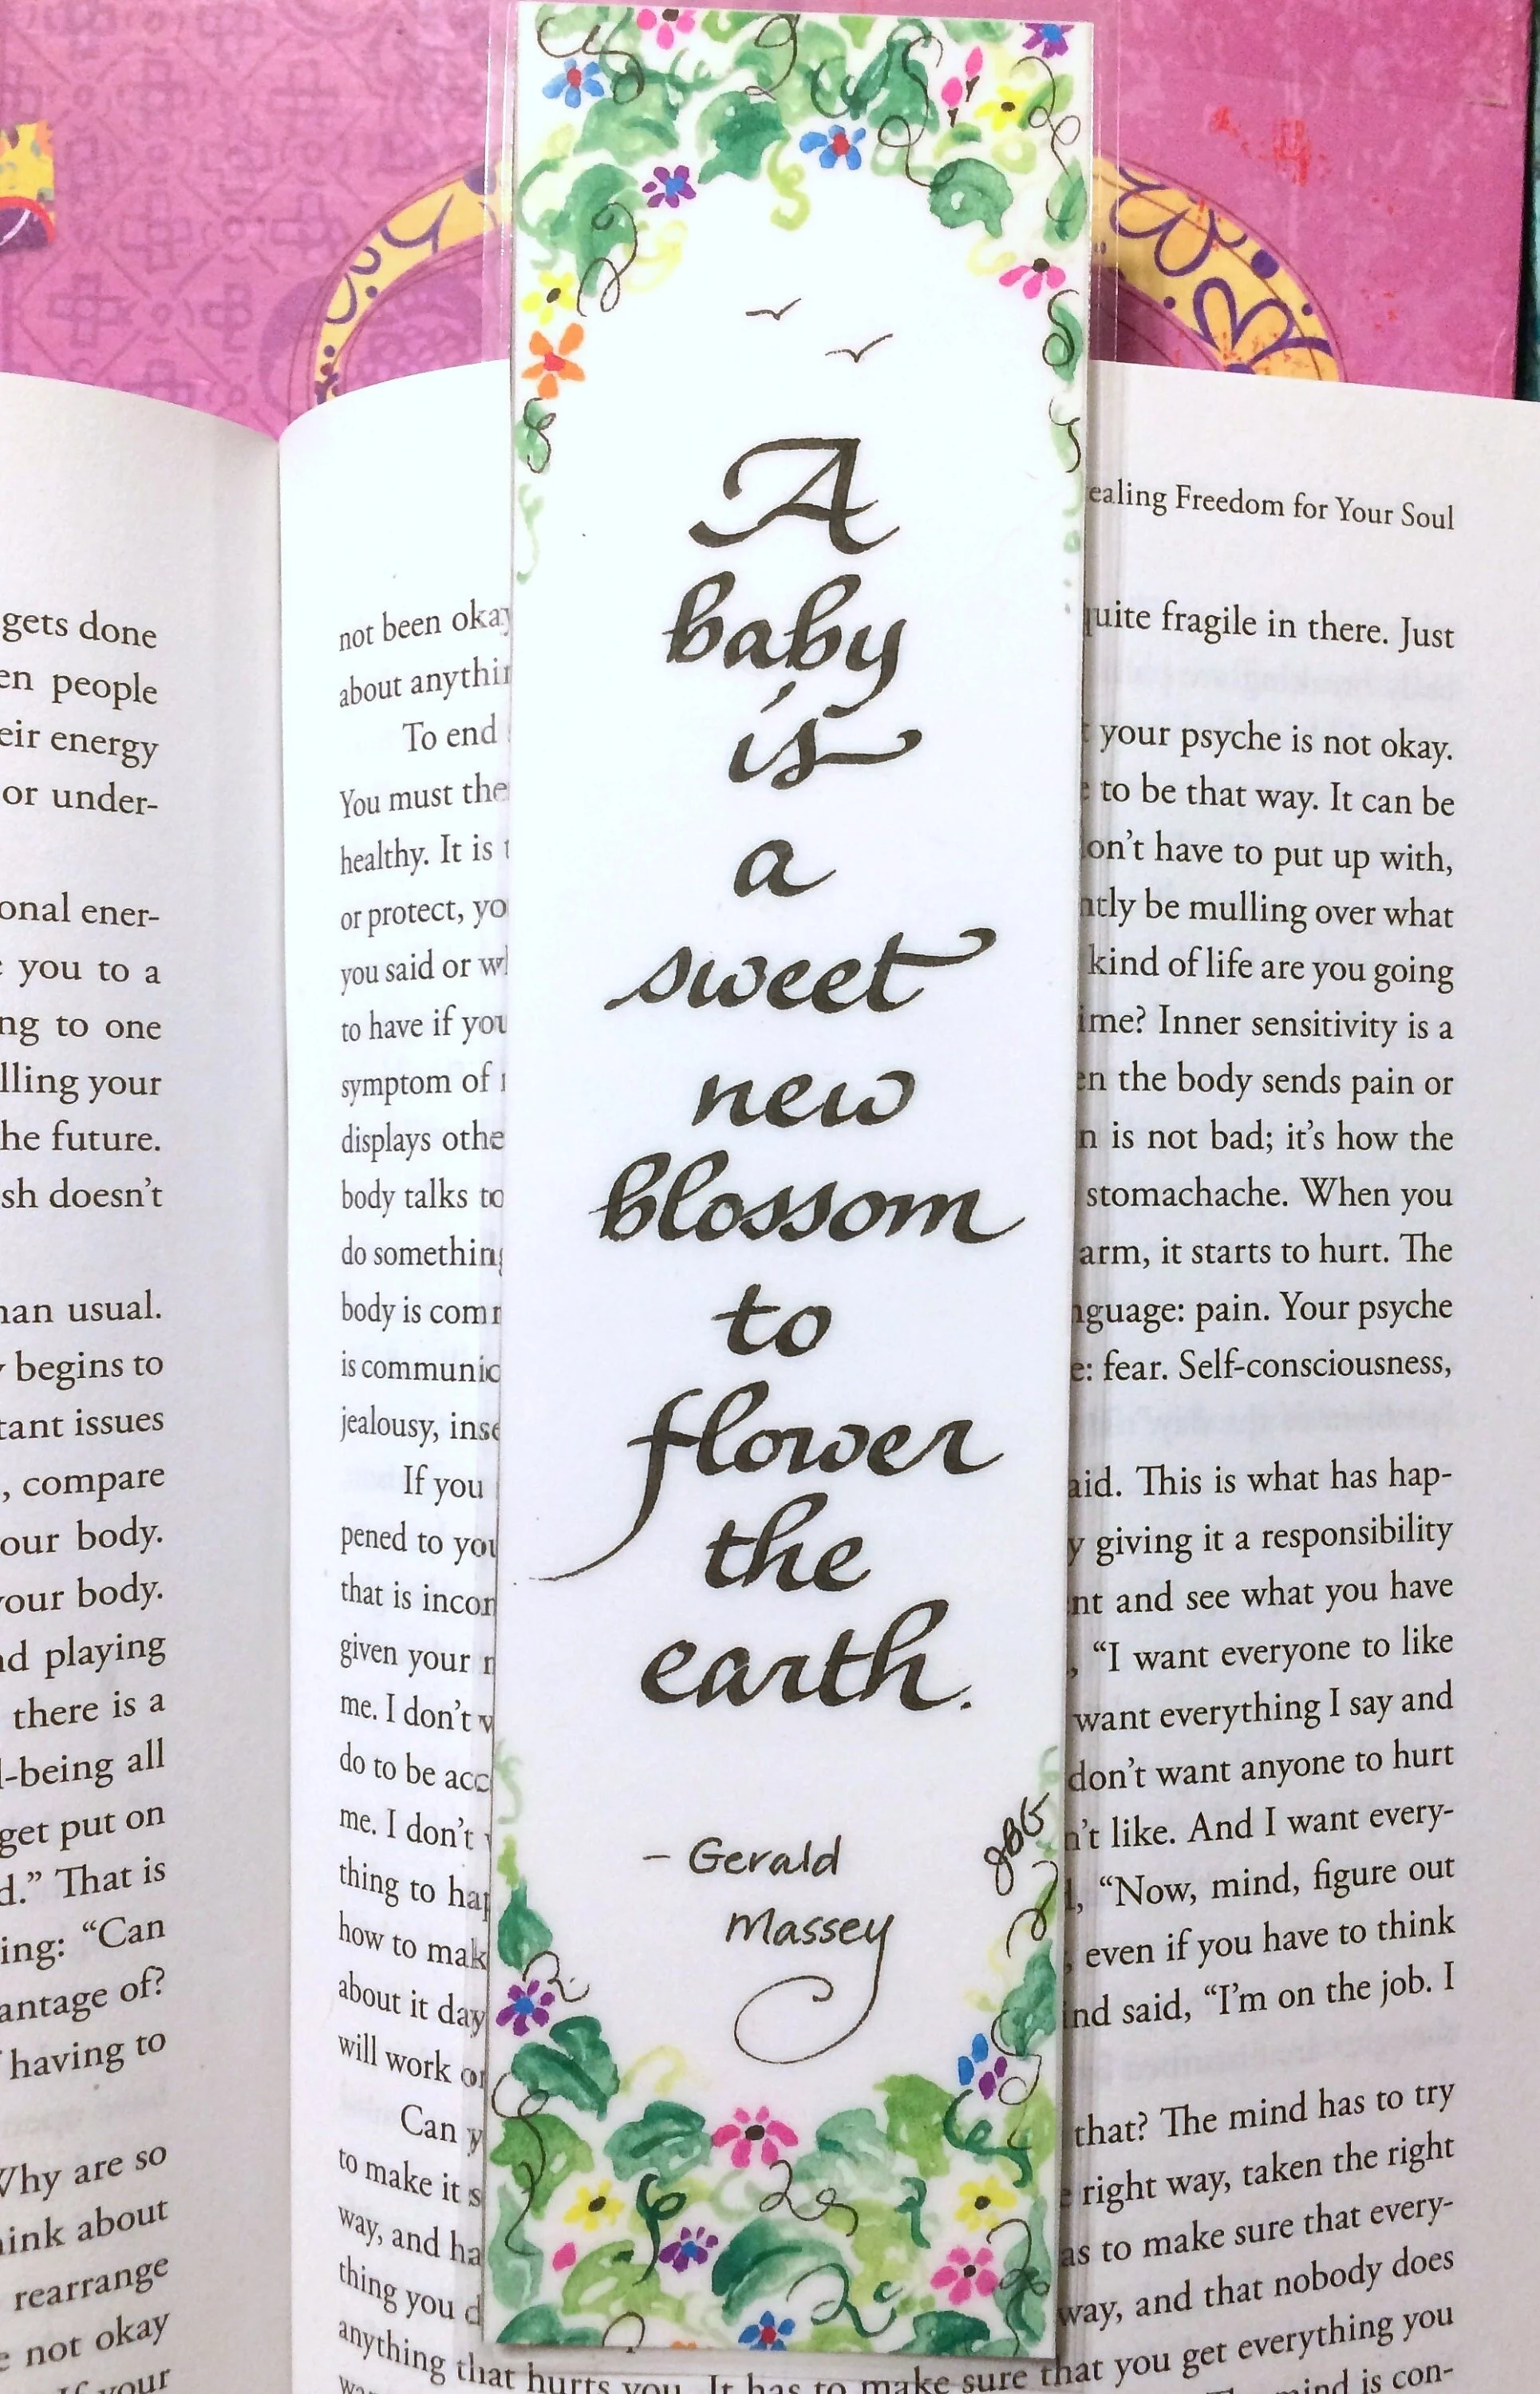 gets done
people
energy
or under-
ener-
you to a
to one
your
future.
doesn't
usual.
begins to
issues
, compare
body.
body.
playing
there is a
being all
get put on
That is
"Can
of?
having to
are so
about
rearrange
not okay
your
ealing Freedom for Your Soul
not been
about
To end
You must
healthy. It is
or protect,
you said or
to have if
symptom of
displays
body talks
do something
body is
is
jealousy,
If you
pened to
that is
given your
me. I don't
do to be
me. I don't
thing to
how to
about it day
will work
Can
to make it
way, and
thing you
anything that hurts you. It has to make sure that you get everything you
fragile in there. Just
your psyche is not okay.
to be that way. It can be
have to put up with,
be mulling over what
kind of life are you going
Inner sensitivity is a
the body sends pain or
is not bad; it's how the
stomachache. When you
arm, it starts to hurt. The
pain. Your psyche
fear. Self-consciousness,
This is what has hap-
giving it a responsibility
and see what you have
"I want everyone to like
want everything I say and
don't want anyone to hurt
like. And I want every-
"Now, mind, figure out
even if you have to think
said, "I'm on the job. I
that? The mind has to try
right way, taken the right
to make sure that every-
way, and that nobody does
mind is con-
A
baby
is
a
sweet
new
blossom
to
flower
the
earth.
– Gerald
Massey
JBG